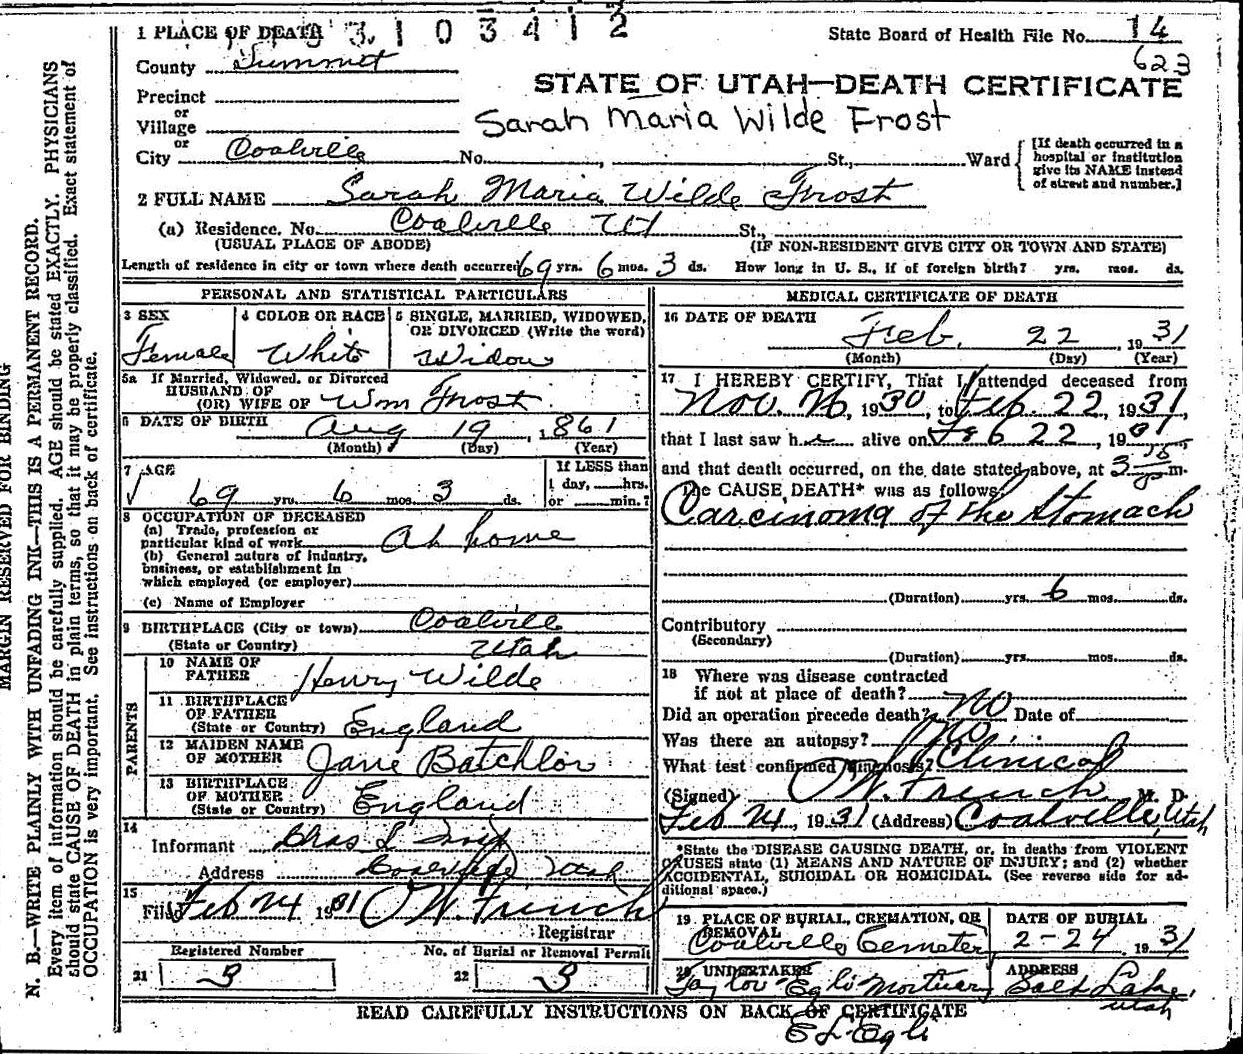 3 1 0 3 4 1 2
1 PLACE OF DEATH
State Board of Health File No. 14
623
County Summit
STATE OF UTAH—DEATH CERTIFICATE
Precinct
or
Village
Sarah Maria Wilde Frost
or
City Coalville No. , St., Ward
[If death occurred in a
hospital or institution
give its NAME instead
of street and number.]
2 FULL NAME Sarah Maria Wilde Frost
(a) Residence. No. Coalville Ut St.,
(USUAL PLACE OF ABODE) (IF NON-RESIDENT GIVE CITY OR TOWN AND STATE)
Length of residence in city or town where death occurred 69 yrs. 6 mos. 3 ds. How long in U. S., if of foreign birth? yrs. mos. ds.
PERSONAL AND STATISTICAL PARTICULARS
3 SEX
Female
4 COLOR OR RACE
White
5 SINGLE, MARRIED, WIDOWED,
OR DIVORCED (Write the word)
Widow
5a If Married, Widowed, or Divorced
HUSBAND OF
(OR) WIFE OF Wm Frost
6 DATE OF BIRTH Aug 19, 1861
(Month) (Day) (Year)
7 AGE
69 yrs. 6 mos. 3 ds.
If LESS than
1 day, hrs.
or min.?
8 OCCUPATION OF DECEASED
(a) Trade, profession or
particular kind of work At home
(b) General nature of industry,
business, or establishment in
which employed (or employer)
(c) Name of Employer
9 BIRTHPLACE (City or town) Coalville
(State or Country) Utah
PARENTS
10 NAME OF
FATHER Henry Wilde
11 BIRTHPLACE
OF FATHER
(State or Country) England
12 MAIDEN NAME
OF MOTHER Jane Batchlor
13 BIRTHPLACE
OF MOTHER
(State or Country) England
14
Informant Chas
Address Coalville Utah
15
Filed Feb 24 1931 O W. French
Registrar
Registered Number
21 3
No. of Burial or Removal Permit
22 3
MEDICAL CERTIFICATE OF DEATH
16 DATE OF DEATH
Feb. 22, 1931
(Month) (Day) (Year)
17 I HEREBY CERTIFY, That I attended deceased from
Nov. , 1930, to Feb. 22, 1931,
that I last saw her alive on Feb 22, 1931,
and that death occurred, on the date stated above, at 3 m.
The CAUSE DEATH* was as follows:
Carcinoma of the Stomach
(Duration) yrs. 6 mos. ds.
Contributory
(Secondary)
(Duration) yrs. mos. ds.
18 Where was disease contracted
if not at place of death?
Did an operation precede death? No Date of
Was there an autopsy? No
What test confirmed diagnosis? Clinical
(Signed) O W. French M. D.
Feb 24, 1931 (Address) Coalville, Utah
*State the DISEASE CAUSING DEATH, or, in deaths from VIOLENT
CAUSES state (1) MEANS AND NATURE OF INJURY; and (2) whether
ACCIDENTAL, SUICIDAL OR HOMICIDAL. (See reverse side for ad-
ditional space.)
19 PLACE OF BURIAL, CREMATION, OR
REMOVAL
Coalville Cemetery
DATE OF BURIAL
2-24 1931
20 UNDERTAKER
Taylor Egli Mortuary
ADDRESS
Salt Lake,
Utah
READ CAREFULLY INSTRUCTIONS ON BACK OF CERTIFICATE
E L Egli
MARGIN RESERVED FOR BINDING
N. B.—WRITE PLAINLY WITH UNFADING INK—THIS IS A PERMANENT RECORD.
Every item of information should be carefully supplied. AGE should be stated EXACTLY. PHYSICIANS
should state CAUSE OF DEATH in plain terms, so that it may be properly classified. Exact statement of
OCCUPATION is very important. See instructions on back of certificate.